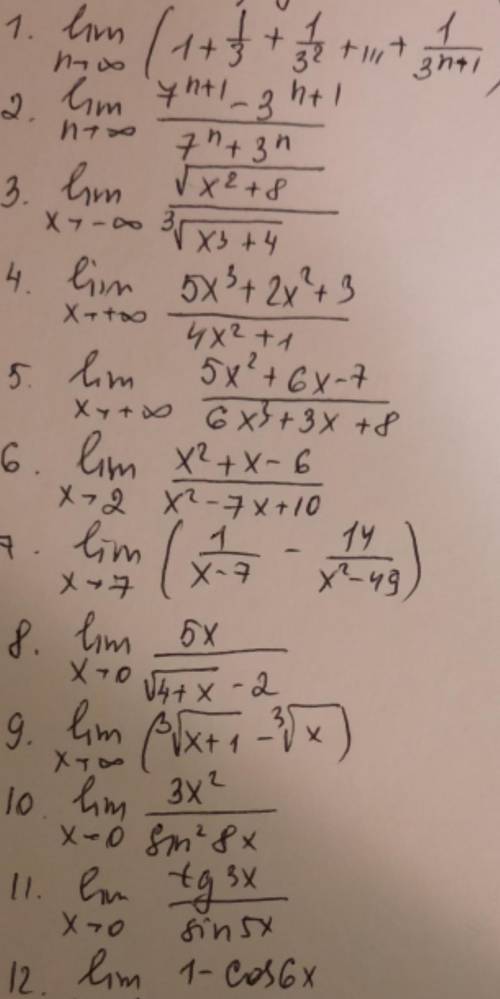 1. lim n→∞ (1 + 1/3 + 1/3² + ... + 1/3ⁿ⁺¹)
2. lim n→∞ (7ⁿ⁺¹ - 3ⁿ⁺¹)/(7ⁿ + 3ⁿ)
3. lim x→-∞ √(x² + 8)/∛(x³ + 4)
4. lim x→+∞ (5x³ + 2x² + 3)/(4x² + 1)
5. lim x→+∞ (5x² + 6x - 7)/(6x³ + 3x + 8)
6. lim x→2 (x² + x - 6)/(x² - 7x + 10)
7. lim x→7 (1/(x-7) - 14/(x² - 49))
8. lim x→0 5x/(√(4+x) - 2)
9. lim x→∞ (∛(x+1) - ∛x)
10. lim x→0 3x²/sin² 8x
11. lim x→0 tg 3x/sin 5x
12. lim 1 - cos 6x